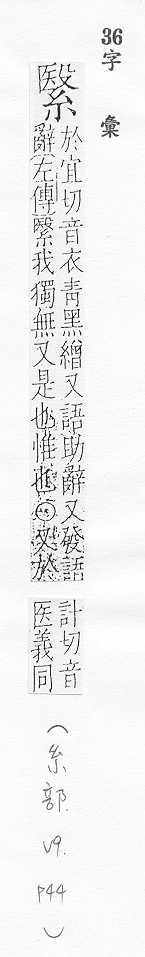 36字 彙
繄
於宜切音衣青黑繒又語助辭又發語
辭左傳繄我獨無又是也惟也○又於
計切音
医義同
(糸部. V9. P44)